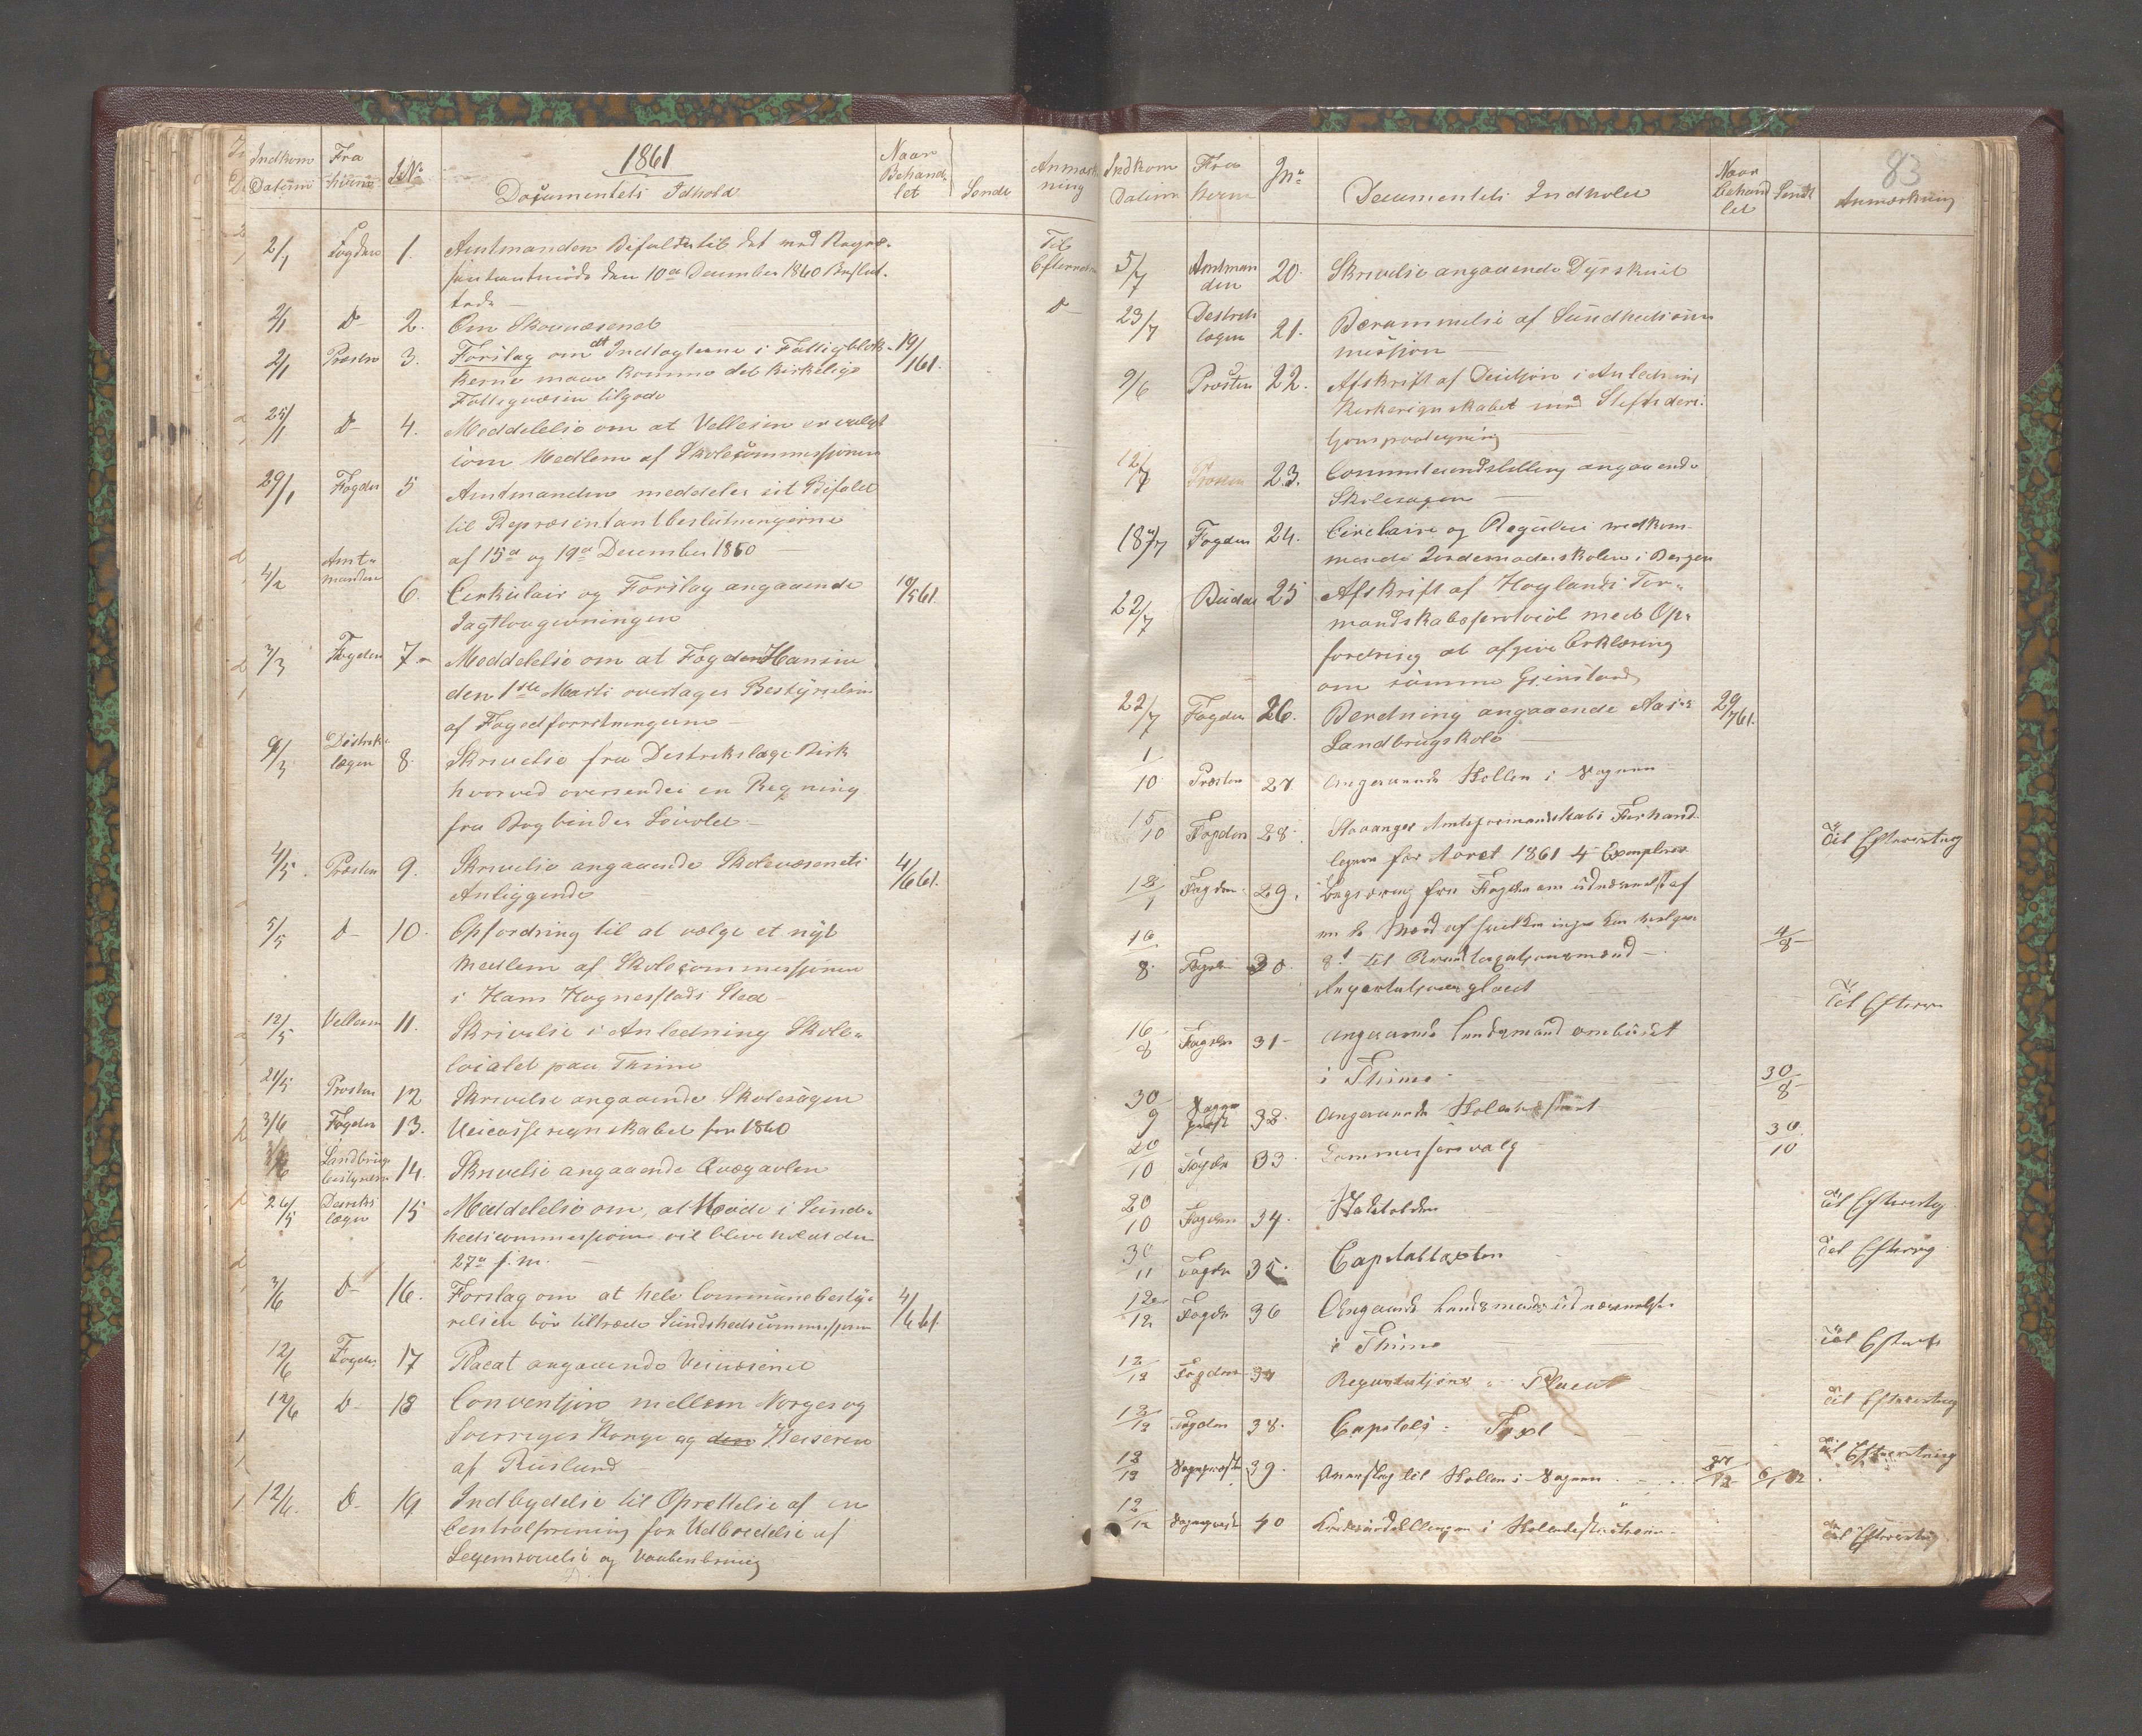 1861
Indkom Datum
Fra hvem
J.No
Documentets Idhold
Naar Behand-let
Sendt
Anmærk ning
2/1 Fogden 1. Amtmandens Bifald til det med Repræ-
sentantmøde den 10de December 1860 Beslut-
tede
Til Efterretn
2/1 Do 2. Om Skovvæsenet Do
2/1 Præsten 3. Forslag om at Indtægterne i Fattigblok- 19/1 61.
kerne maae komme det kirkelige
Fattigvæsen tilgode
25/1 Do 4. Meddelelse om at Vellesen er valgt
som Medlem af Skolecommissjonen
29/1 Fogden 5 Amtmanden meddeler sit Bifald
til Repræsentantbeslutningerne
af 15de og 19de December 1860
4/2 Amt-manden 6. Cirkulair og Forslag angaaende 19/5 61.
Jagtlovgivningen
3/3 Fogden 7 Meddelelse om at Fogden Hansen
den 1ste Marts overtager Bestyrelsen
af Fogedforretningerne
9/3 Distrikslægen 8. Skrivelse fra Distrikslæge Kirk
hvorved oversendes en Regning
fra Bogbinder
4/5. Præsten 9. Skrivelse angaaende Skolevæsenets 4/6 61.
Anliggende
5/5 Do 10. Opfordring til at vælge et nyt
Medlem af Skolecommissjonen
i Hans Hognestads Sted
12/5 Vellesen 11. Skrivelse i Anledning Skole-
localet paa Thime
21/5 Præsten 12 Skrivelse angaaende Skolesagen
3/6 Fogden 13. Veicasseregnskabet for 1860
3/6 Landbrugsbestyreren 14. Skrivelse angaaende Qvægavlen
26/5 Distrikslægen 15 Meddelelse om, at Møde i Sund-
hedscommissjonen vil blive holdt den
27de f. m.
3/6 Do 16. Forslag om at hele Communebesty- 4/6 61.
relsen bør tiltræde Sundhedscommissjonen
12/6 Fogden 17 Placat angaaende Veivæsenet
12/6 Do 18 Conventjon mellem Norges og
Sverriges Konge og den Keiseren
af Rusland
12/6. Do 19 Indbydelse til Oprettelse af en
Centralforening for Udbredelse af
Legemsøvelse og Vaabenbrug
83
Indkom Datum
Fra hvem
Jno
Documentets Indhold
Naar behand let
Sendt
Anmærkning
5/7 Amtman den 20. Skrivelse angaaende Dyrskuet
23/7 Distrikslægen 21. Berammelse af Sundhedscom
missjon
9/6 Præsten 22. Afskrift af Decisjon i Anledning
Kirkeregnskabet
12/7 Præsten 23. Committeeindstilling angaaende
Skolesagen
18/7 Fogden 24. Circulaire og Reguleri vedkom-
mende Jordemoderskolen i Bergen
22/7 Budde 25 Afskrift af Høylands For-
mandskabsprotocol med Op-
fordring at afgive Erklæring
om samme Gjenstand
22/7 Fogden 26. Beretning angaaende Aas 29/7 61.
Landbrugskole
1/10 Præsten 27 Angaaende Skolen i Sognene
15/10 Fogden 28. Stavanger Amtsformandskabs Forhand
linger for Aaret 1861 4 Exemplarer Til Efterretning
18/1 Fogden 29. Begjæring fra Fogden om udnævnelse af
4/8
16/8. Fogden 30.
Til Efterre
16/8 Fogden 31 angaaende Lensmand ombudet
i Thime 30/8
30/9 Sogne præst 32. angaaende Skolevæsenet
30/10
20/10 Fogden 33 Commissærvalg
20/10 Fogden 34. Til Efterretng
30/11 Fogden 35. Capitaltaxten Til Efterretg
12/12 Fogden 36 Angaaende Lensmands udnævnelse
i Thime Til Efterretn
12/12 Fogden 37 Placat Til Efterretning
13/12 Fogden 38. Til Efterretning
12/12 Sognepræsten 39. Overslag til Skolen i Sognene 27/12
12/12 Sognepræst 40 Til Efterretnig